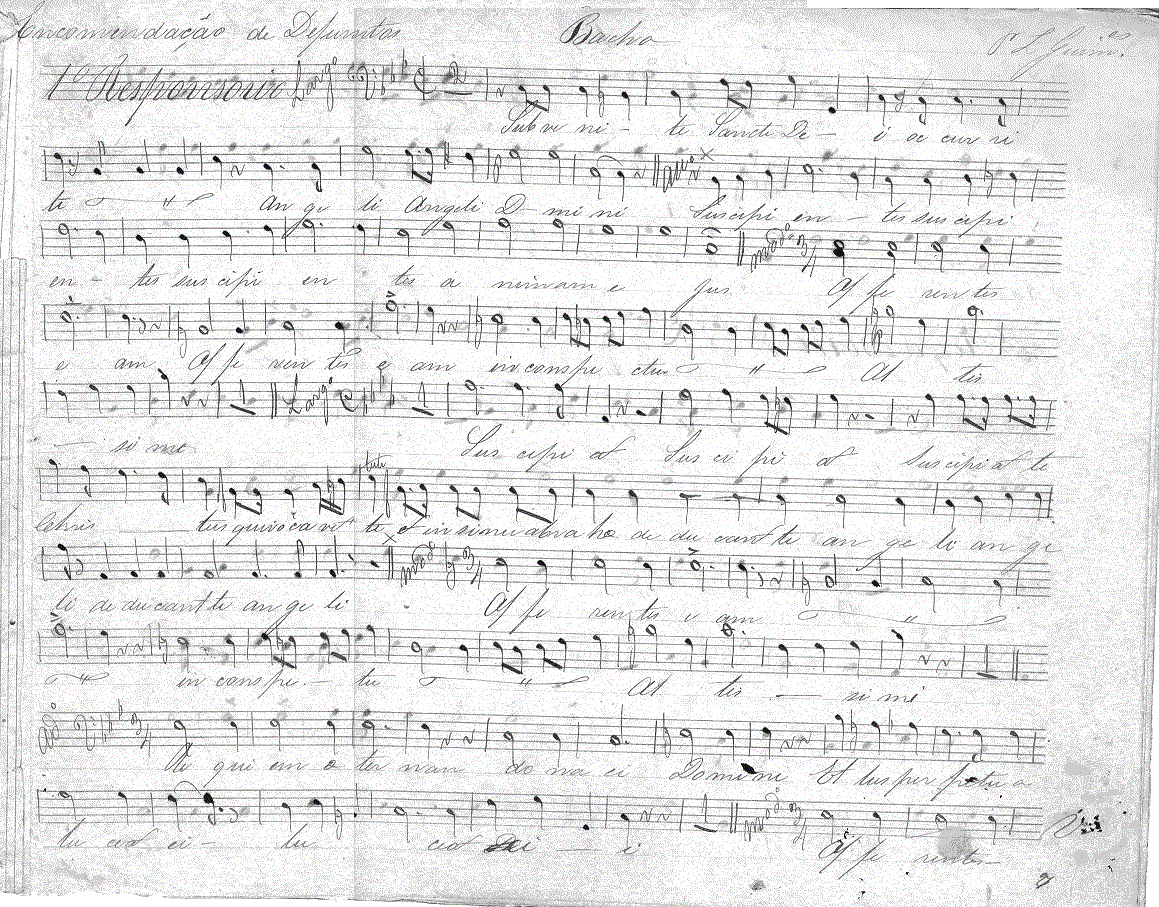 Encomendação de Defuntos Bacho
1º Responsorio Largo
Subve ni - te Sancti De - i oc cur ri
te an ge li Angeli D mi ni Suscipi en - tes suscipi
en - tes suscipi en tes a nimam e jus Of fe rentes
e am Of fe ren tes e am in conspe ctu Al tis
Largo
si me Sus cipi at Sus ci pi at Suscipiat te
tute
Chris tus qui vocavit te et in sinu abrahæ de du cant te an ge li an ge
li deducant te an ge li Of fe rentes e am
in conspe - tu Al tis - si mi
Re qui em e ter nan do na ei Domine Et lus per petu a
lu ceat ei - lu ceat ei - i Of fe rentes -